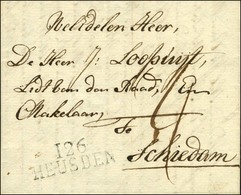 WelEdelen Heer,
De Heer J: Loopuijt,
Lidt van den Raad, En
Makelaar,
Te
Schiedam
126
HEUSDEN